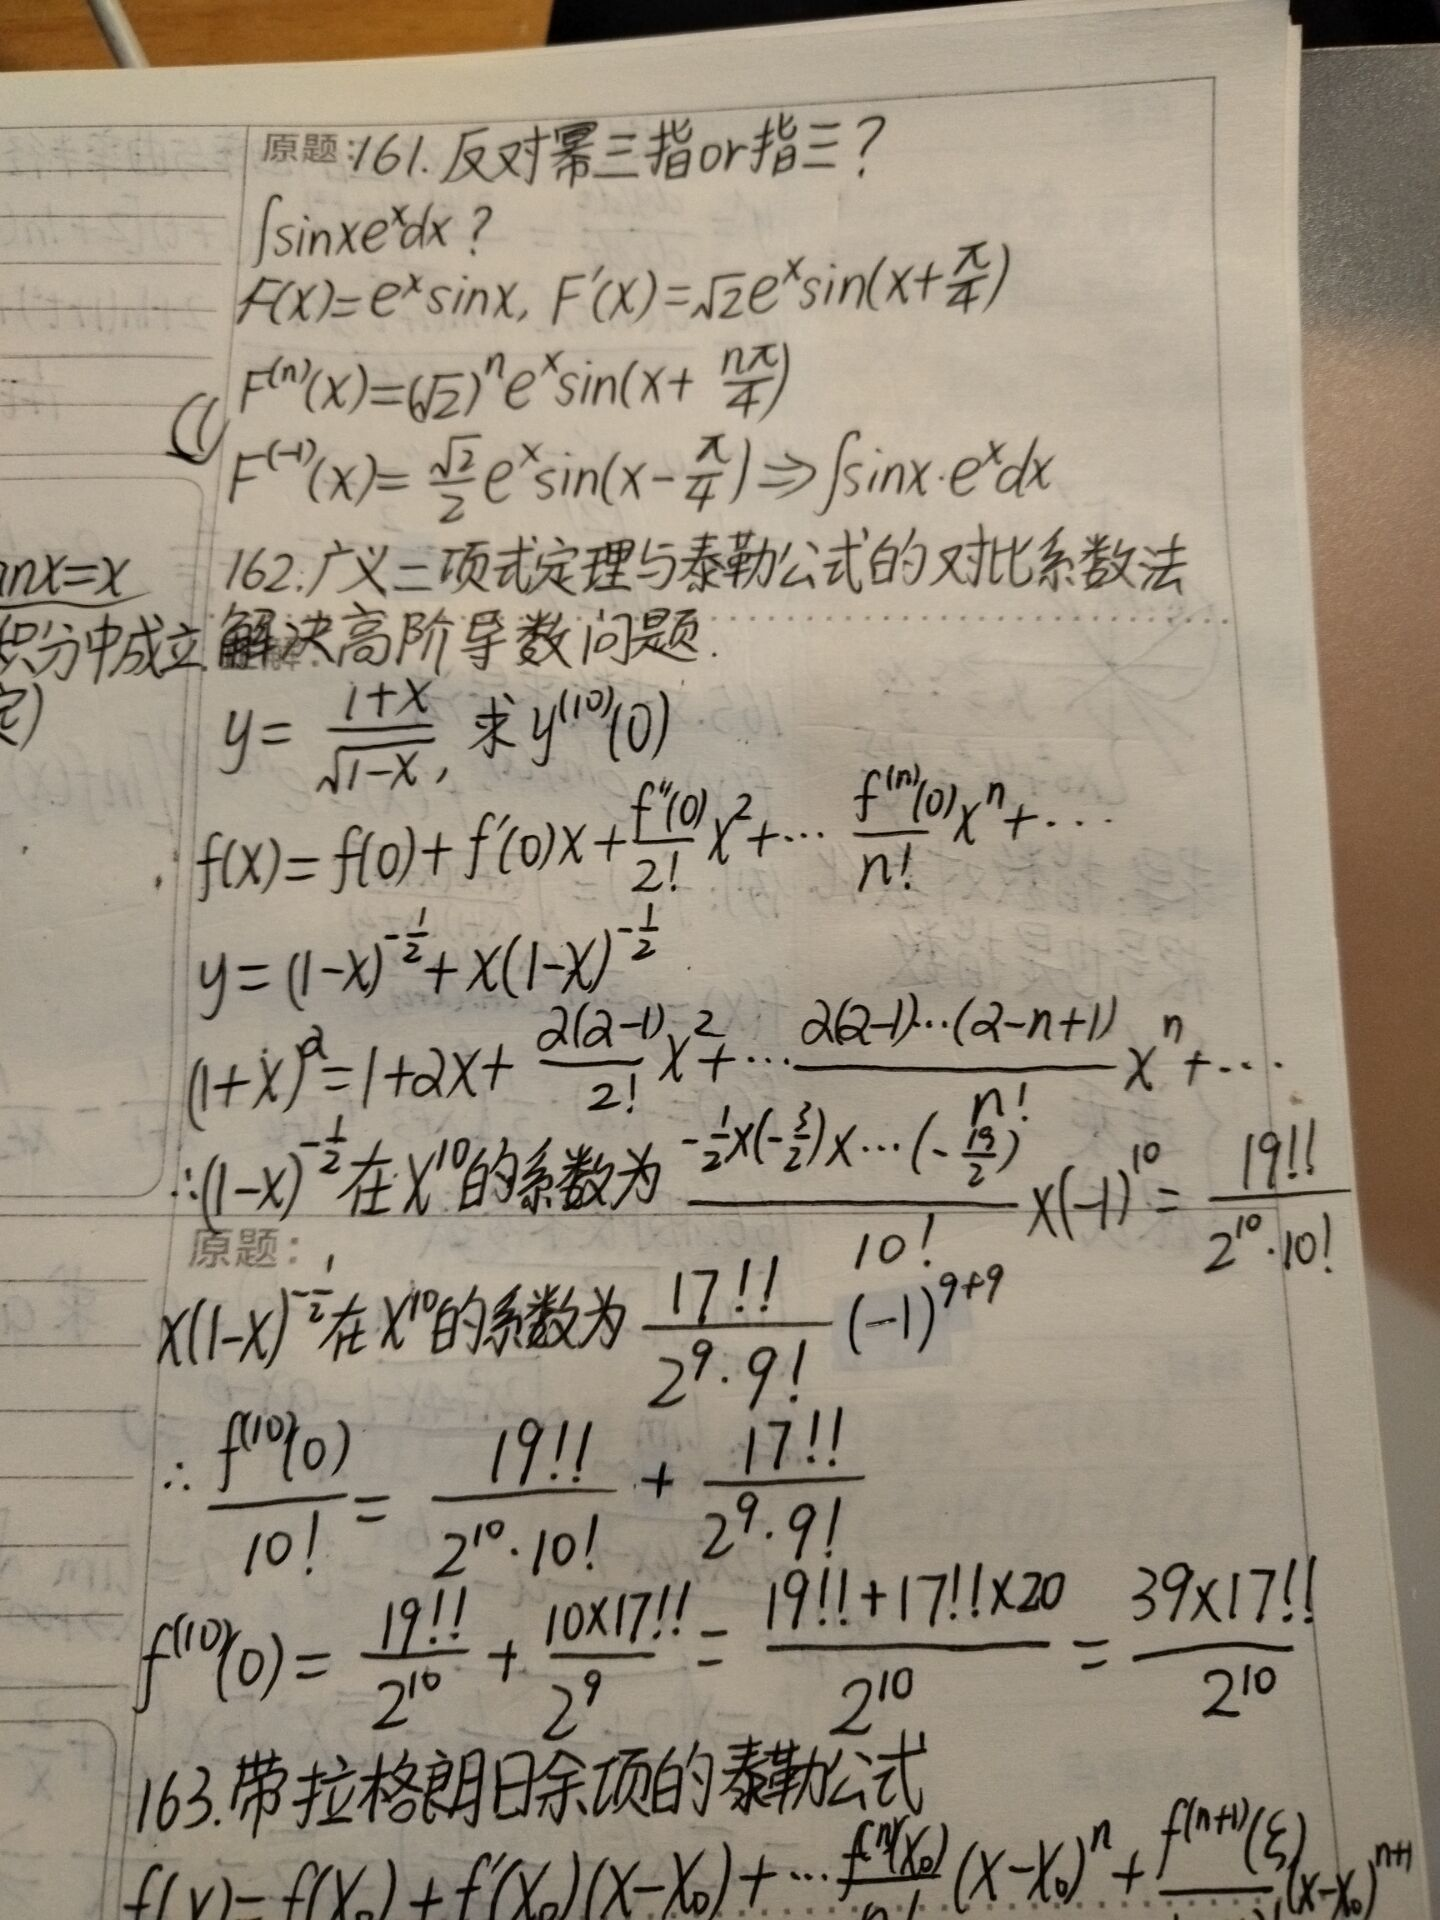 原题:161.反对幂三指or指三?
∫sinxeˣdx?
F(x)=eˣsinx, F′(x)=√2eˣsin(x+π/4)
F⁽ⁿ⁾(x)=(√2)ⁿeˣsin(x+nπ/4)
F⁽⁻¹⁾(x)=√2/2eˣsin(x-π/4)⇒∫sinx·eˣdx
nx=x
积分中成立.
定)
162.广义二项式定理与泰勒公式的对比系数法
解决高阶导数问题.
y=(1+x)/√(1-x), 求y⁽¹⁰⁾(0)
f(x)=f(0)+f′(0)x+f″(0)/2! x²+…f⁽ⁿ⁾(0)/n! xⁿ+…
y=(1-x)^(-1/2)+x(1-x)^(-1/2)
(1+x)^α=1+αx+α(α-1)/2! x²+…α(α-1)…(α-n+1)/n! xⁿ+…
∴(1-x)^(-1/2)在x¹⁰的系数为(-1/2×(-3/2)×…(-19/2))/10! ×(-1)¹⁰=19!!/(2¹⁰·10!)
原题:
x(1-x)^(-1/2)在x¹⁰的系数为17!!/(2⁹·9!) (-1)⁹⁺⁹
∴f⁽¹⁰⁾(0)/10!=19!!/(2¹⁰·10!)+17!!/(2⁹·9!)
f⁽¹⁰⁾(0)=19!!/2¹⁰+10×17!!/2⁹=(19!!+17!!×20)/2¹⁰=39×17!!/2¹⁰
163.带拉格朗日余项的泰勒公式
f(x)=f(x₀)+f′(x₀)(x-x₀)+…f⁽ⁿ⁾(x₀)/n! (x-x₀)ⁿ+f⁽ⁿ⁺¹⁾(ξ)/ (x-x₀)ⁿ⁺¹